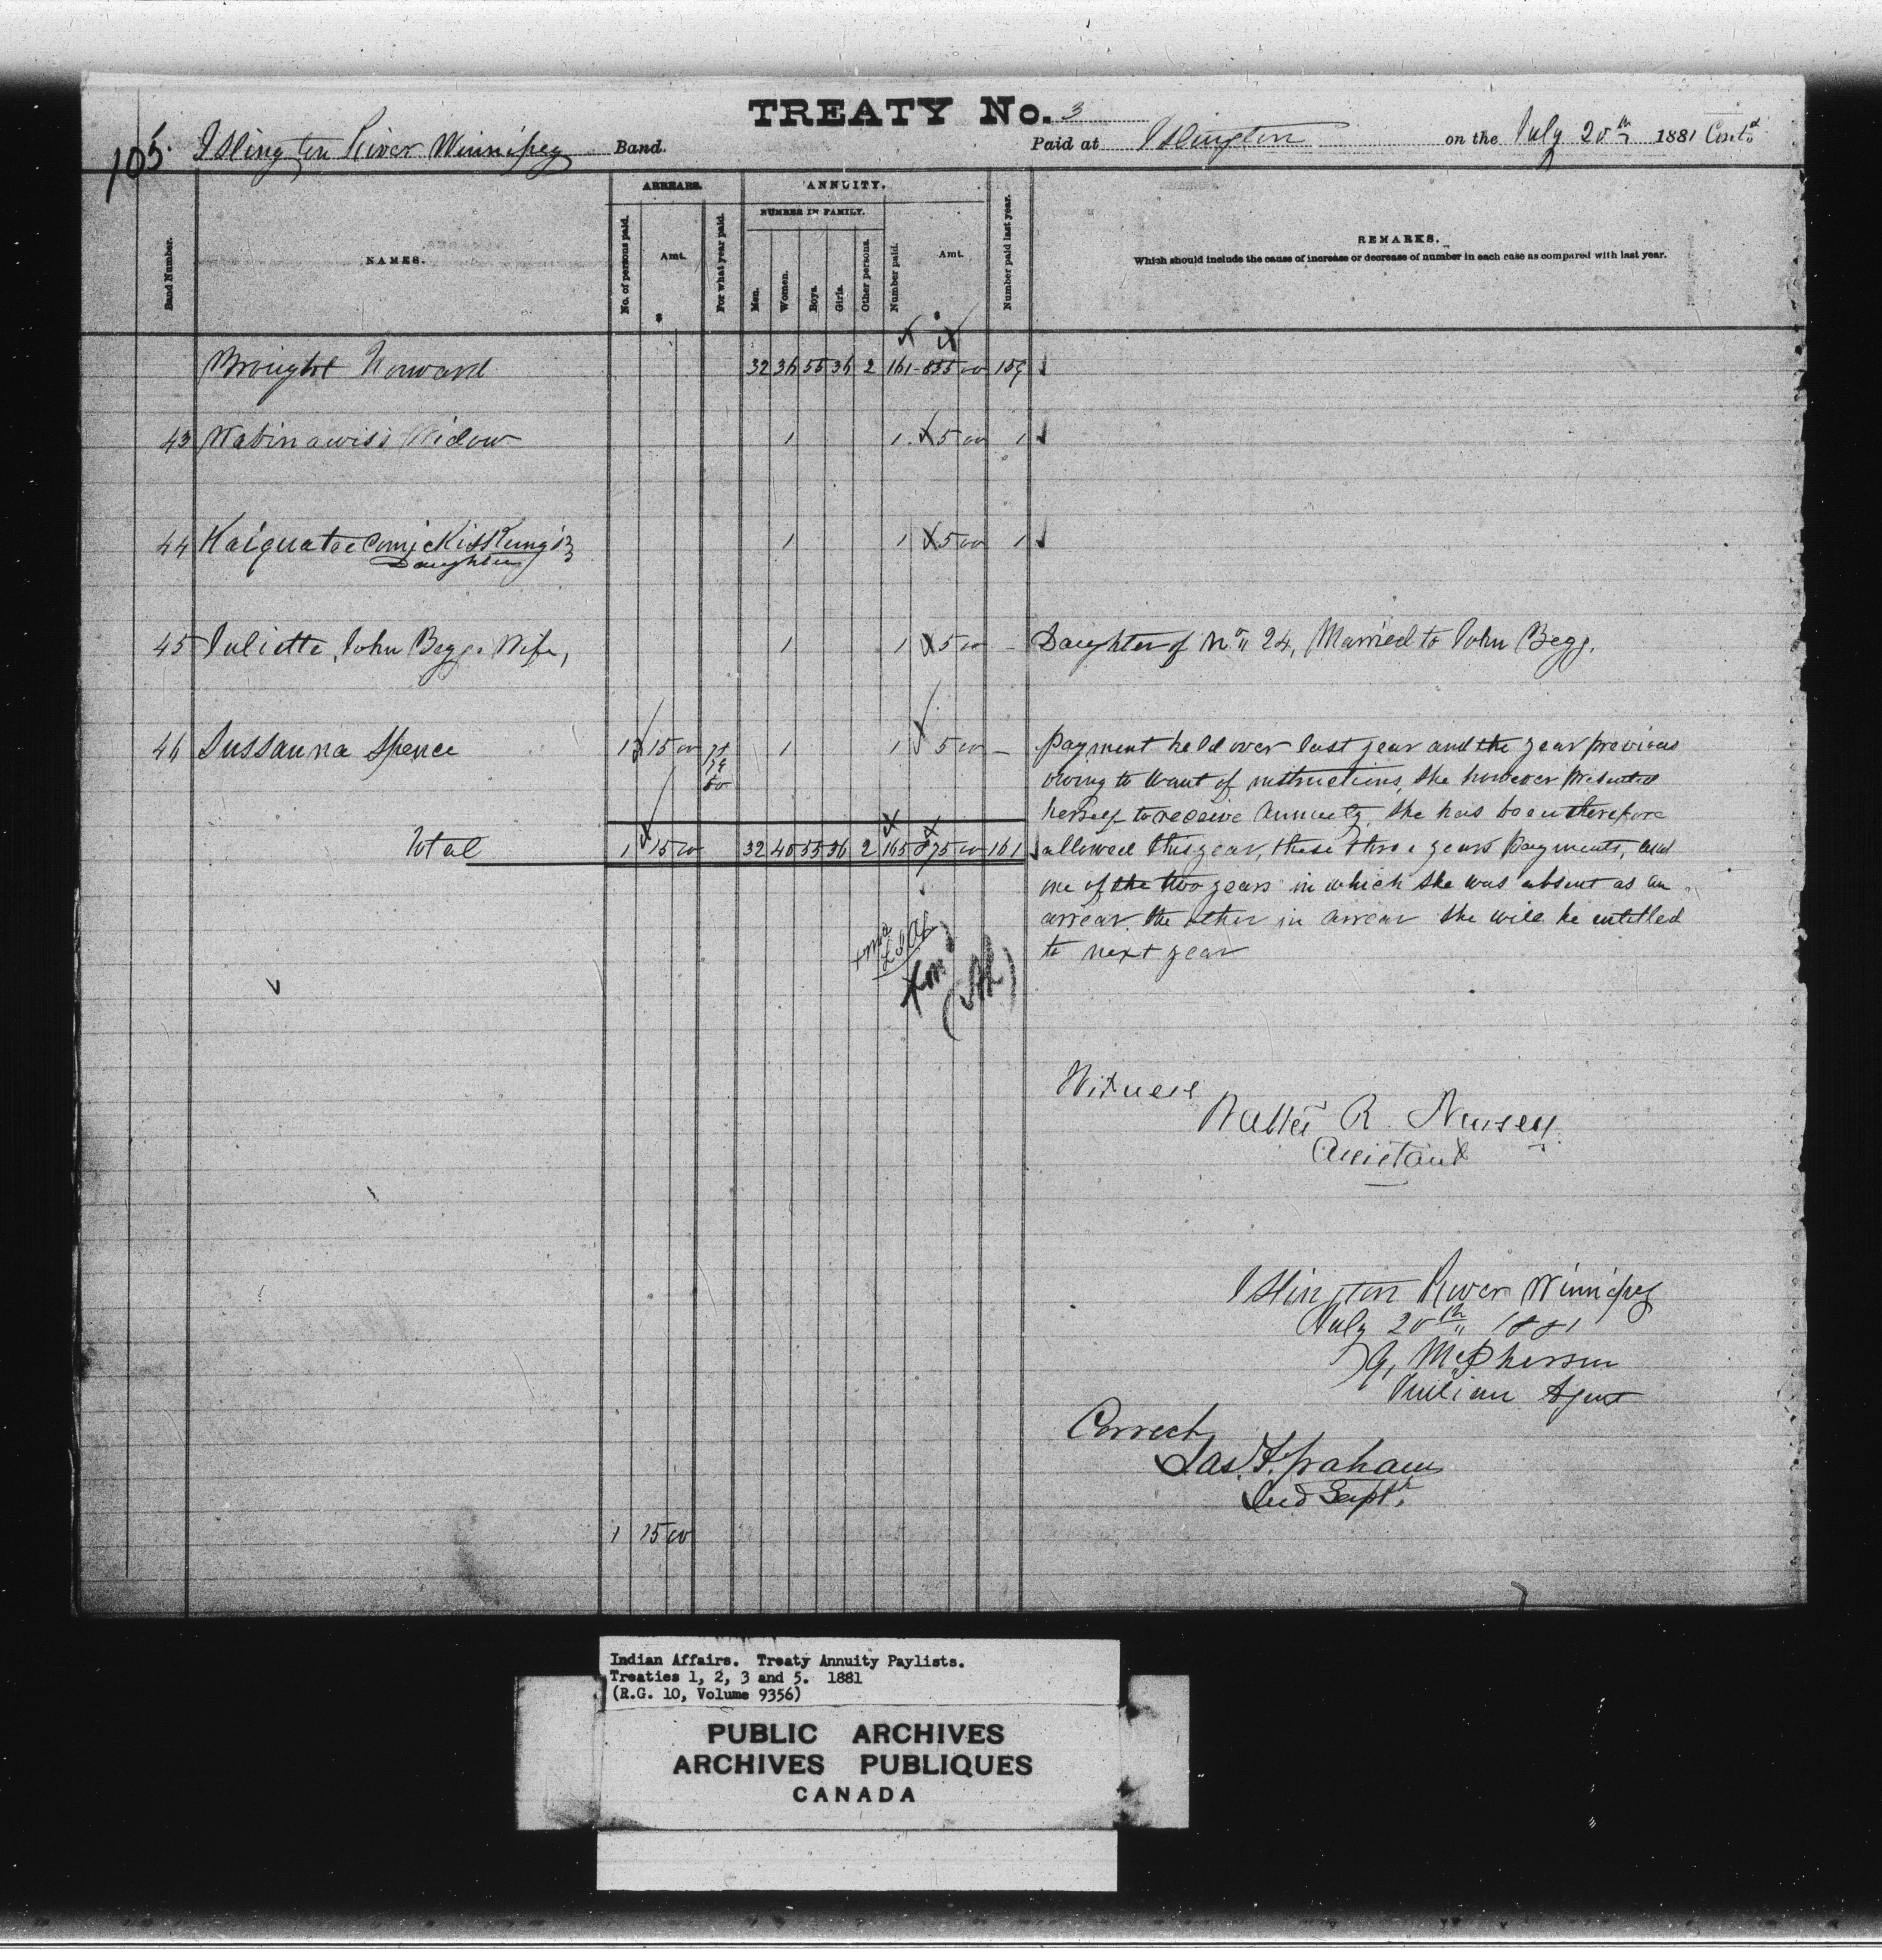 TREATY No. 3
105. Islington River Winnipeg Band. Paid at Islington on the July 20th 1881 Cont'd
ARREARS. ANNUITY.
NUMBER IN FAMILY.
Band Number. NAMES. No. of persons paid. Amt. For what year paid. Men. Women. Boys. Girls. Other persons. Number paid. Amt. Number paid last year. REMARKS.
Which should include the cause of increase or decrease of number in each case as compared with last year.
Brought Forward 32 36 55 36 2 161 855 00 159
43 Wabinawis's Widow 1 1 5 00 1
44 Kaiquatce Comickisskung's 1 1 5 00 1
Daughter
45 Juliette, John Begg's Wife, 1 1 5 00 - Daughter of No 24, Married to John Begg.
46 Sussanna Spence 1 15 00 78 79 80 1 1 5 00 - Payment held over last year and the year previous
owing to want of instructions, she however presented
herself to receive annuity, she has been therefore
Total 1 15 00 32 40 55 36 2 165 875 00 161 allowed this year, these three years payments, and
one of the two years in which she was absent as an
arrear, the other in arrear she will be entitled
to next year
Witness
Walter R. Nursey
Assistant
Islington River Winnipeg
July 20th 1881
G, McPherson
Indian Agent
Correct,
Jas. F. Graham
Ind Supt.
1 15 00
Indian Affairs. Treaty Annuity Paylists.
Treaties 1, 2, 3 and 5. 1881
(R.G. 10, Volume 9356)
PUBLIC ARCHIVES
ARCHIVES PUBLIQUES
CANADA